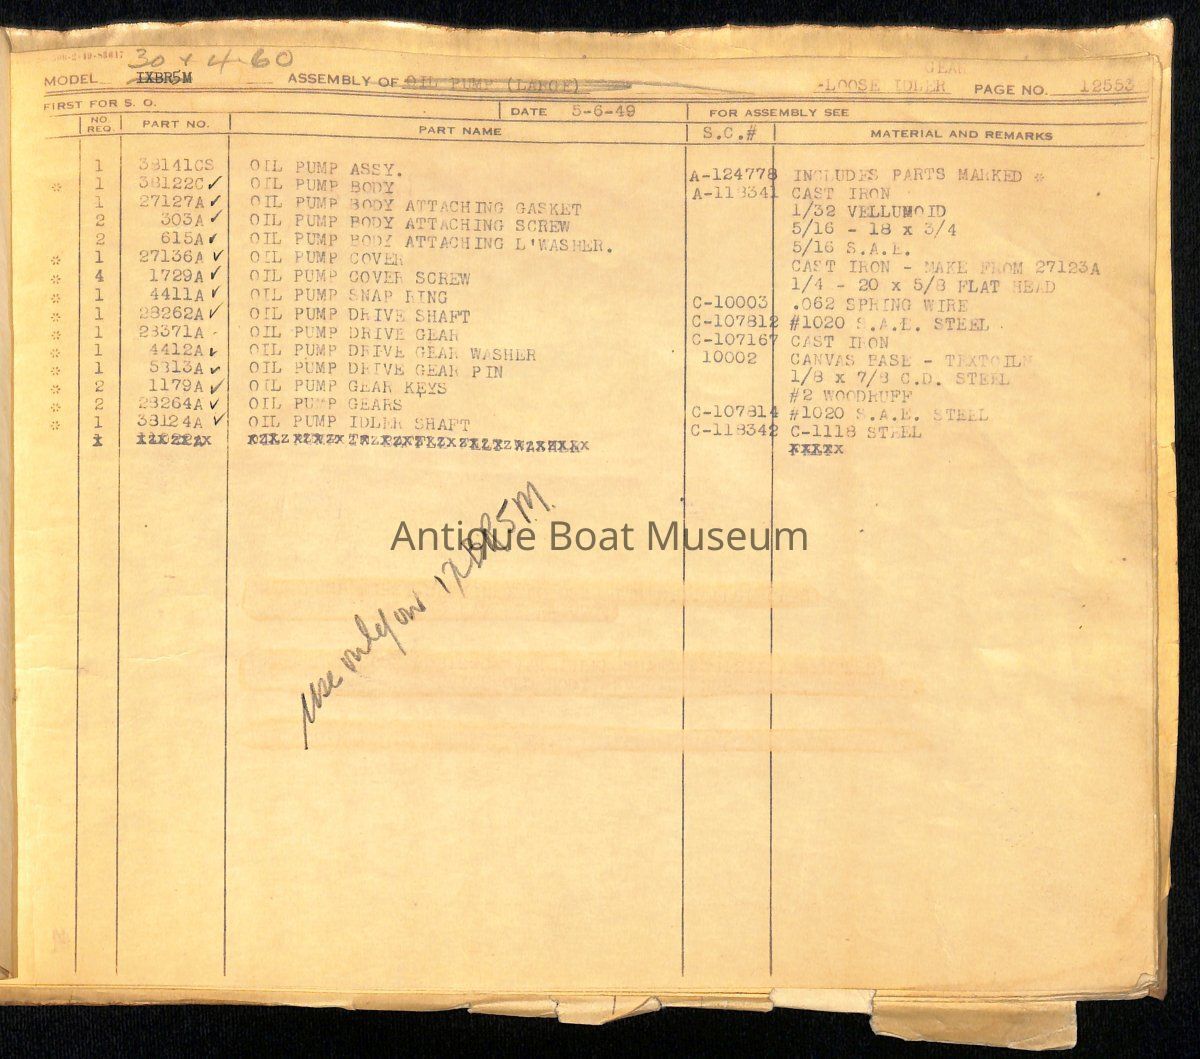 30 + 4-60
GEAR
MODEL IXBR5M ASSEMBLY OF OIL PUMP (LARGE) -LOOSE IDLER PAGE NO. 12553
FIRST FOR S. O. DATE 5-6-49 FOR ASSEMBLY SEE
NO. REQ. PART NO. PART NAME S.C.# MATERIAL AND REMARKS
1 38141CS OIL PUMP ASSY. A-124778 INCLUDES PARTS MARKED *
* 1 38122C ✓ OIL PUMP BODY A-118341 CAST IRON
1 27127A ✓ OIL PUMP BODY ATTACHING GASKET 1/32 VELLUMOID
2 303A ✓ OIL PUMP BODY ATTACHING SCREW 5/16 - 18 x 3/4
2 615A ✓ OIL PUMP BODY ATTACHING L'WASHER. 5/16 S.A.E.
* 1 27136A ✓ OIL PUMP COVER CAST IRON - MAKE FROM 27123A
* 4 1729A ✓ OIL PUMP COVER SCREW 1/4 - 20 x 5/8 FLAT HEAD
* 1 4411A ✓ OIL PUMP SNAP RING C-10003 .062 SPRING WIRE
* 1 28262A ✓ OIL PUMP DRIVE SHAFT C-107812 #1020 S.A.E. STEEL
* 1 28371A - OIL PUMP DRIVE GEAR C-107167 CAST IRON
* 1 4412A ✓ OIL PUMP DRIVE GEAR WASHER 10002 CANVAS BASE - TEXTOILN
* 1 5313A ✓ OIL PUMP DRIVE GEAR PIN 1/8 x 7/8 C.D. STEEL
* 2 1179A ✓ OIL PUMP GEAR KEYS #2 WOODRUFF
* 2 28264A ✓ OIL PUMP GEARS C-107814 #1020 S.A.E. STEEL
* 1 38124A ✓ OIL PUMP IDLER SHAFT C-118342 C-1118 STEEL
use only on IXBR5M
Antique Boat Museum